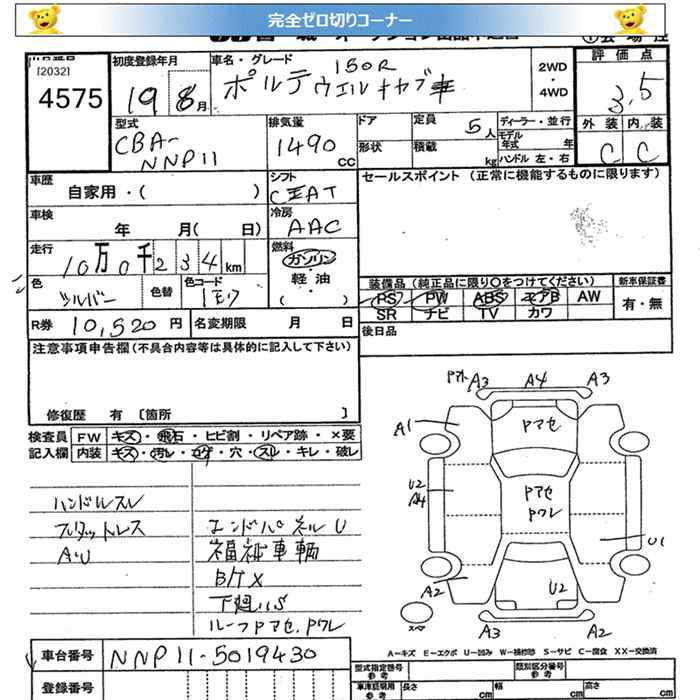 完全ゼロ切りコーナー
[2032]
4575
初度登録年月
19 8月
車名・グレード
150R
ポルテ ウェルキャブ車
2WD・4WD
評価点
3.5
型式
CBA-NNP11
排気量
1490 CC
ドア
定員 5人
形状
積載 kg
ディーラー・並行
モデル年式 年
ハンドル 左・右
外装 内装
C C
車歴
自家用・( )
シフト
AT
セールスポイント (正常に機能するものに限ります)
車検
年 月( 日)
冷房
AAC
走行
10万0千234km
燃料
ガソリン・軽油・( )
色
シルバー
色替
色コード
1E7
装備品 (純正品に限り〇をつけてください)
新車保証書
PS PW ABS エアB AW
SR ナビ TV カワ
有・無
R券 10,520円
名変期限 月 日
後日品
注意事項申告欄 (不具合内容等は具体的に記入して下さい)
修復歴 有 [箇所 ]
検査員記入欄
FW キズ・飛石・ヒビ割・リペア跡・×要
内装 キズ・汚レ・コゲ・穴・スレ・キレ・破レ
ハンドルスレ
フロアマットレス
A・U
エンドパネルU
福祉車輌
B/TX
下廻りS
ルーフPマセ、Pワレ
A3 A4 A3
A1
Pマセ
U2
A4
Pマセ
Pワレ
U1
A2
U2
スペア
A3
A2
A-キズ E-エクボ U-凹み W-補修跡 S-サビ C-腐食 XX-交換済
車台番号 NNP11-5019430
登録番号
型式指定番号
参考
類別区分番号
参考
車庫証明用
参考
長さ cm
幅 cm
高さ cm